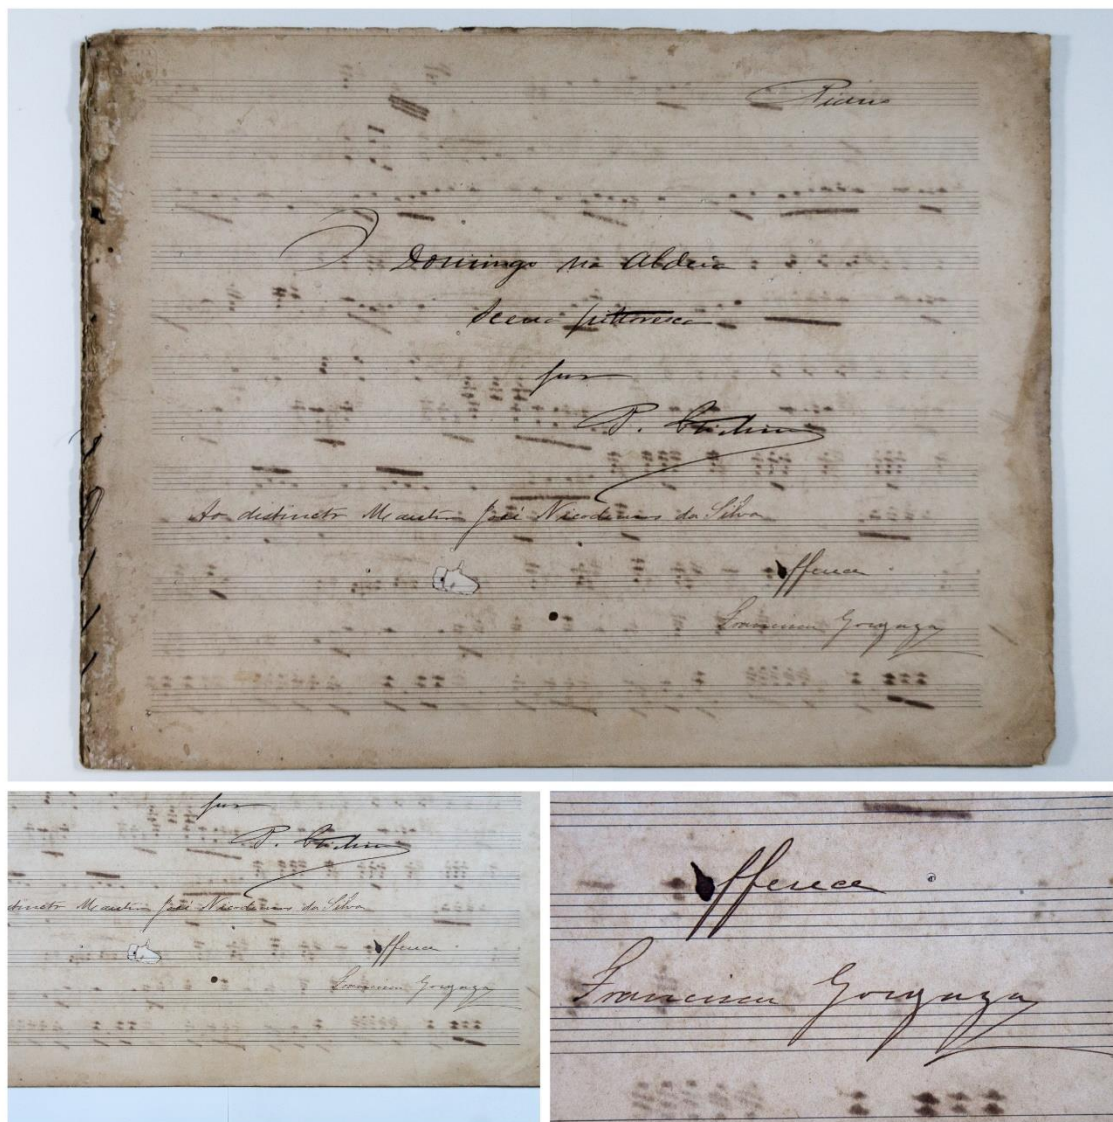 Piano
Domingo na Aldeia
Scena pittoresca
por
P.
Ao distincto Maestro José Nicodemus da Silva
Offerece
Francisca Gonzaga
por
P.
Maestro José Nicodemus da Silva
Offerece
Francisca Gonzaga
Offerece
Francisca Gonzaga